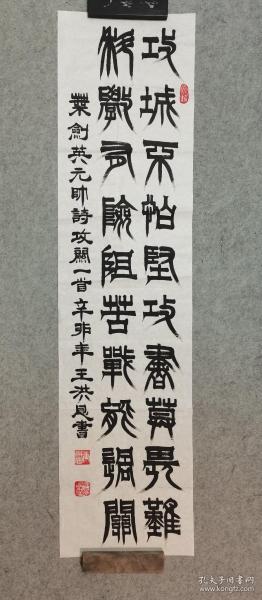 攻城不怕堅攻書莫畏難
科學有險阻苦戰能過關
葉劍英元帥詩攻關一首辛卯年王洪恩書
孔夫子旧书网
www.kongfz.com